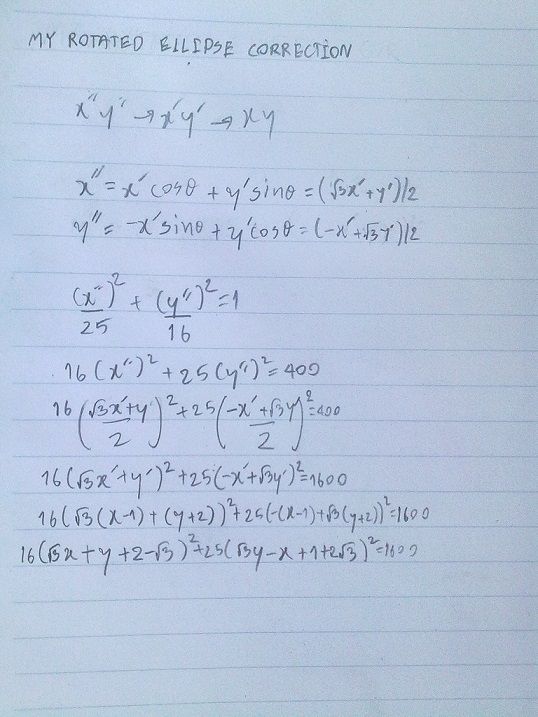 MY ROTATED ELLIPSE CORRECTION
x''y'' → x'y' → xy
x'' = x'cosθ + y'sinθ = (√3x'+y')/2
y'' = -x'sinθ + y'cosθ = (-x'+√3y')/2
(x'')²/25 + (y'')²/16 = 1
16(x'')² + 25(y'')² = 400
16((√3x'+y')/2)² + 25((-x'+√3y)/2)² = 400
16(√3x'+y')² + 25(-x'+√3y')² = 1600
16(√3(x-1)+(y+2))² + 25(-(x-1)+√3(y+2))² = 1600
16(√3x+y+2-√3)² + 25(√3y-x+1+2√3)² = 1600